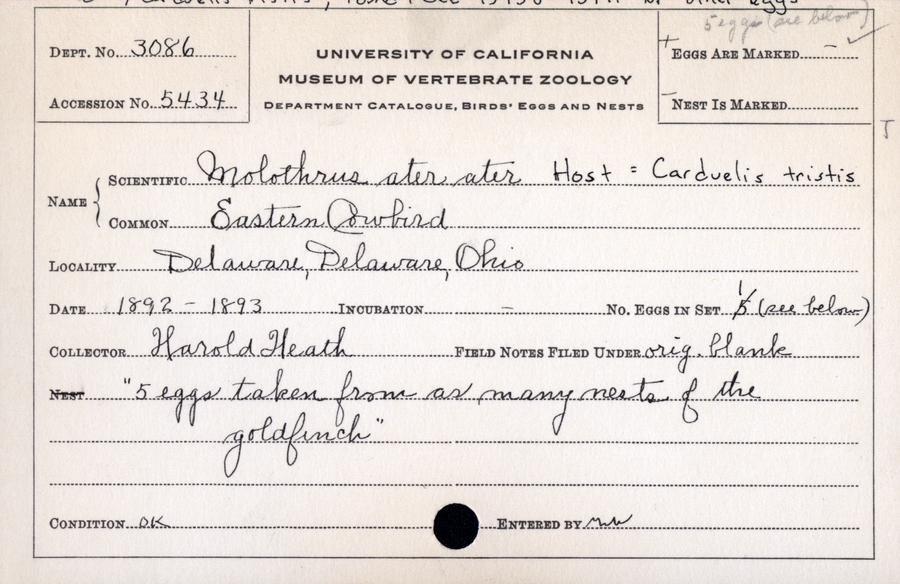 Carduelis tristis,
5 eggs (see below)
DEPT. No. 3086
UNIVERSITY OF CALIFORNIA
MUSEUM OF VERTEBRATE ZOOLOGY
DEPARTMENT CATALOGUE, BIRDS' EGGS AND NESTS
+ EGGS ARE MARKED - ✓
ACCESSION No. 5434
- NEST IS MARKED
NAME
SCIENTIFIC Molothrus ater ater Host = Carduelis tristis
COMMON Eastern Cowbird
LOCALITY Delaware, Delaware, Ohio
DATE 1892 - 1893 INCUBATION - No. EGGS IN SET 1/5 (see below)
COLLECTOR Harold Heath FIELD NOTES FILED UNDER orig. blank
NEST "5 eggs taken from as many nests of the
goldfinch"
CONDITION OK ENTERED BY